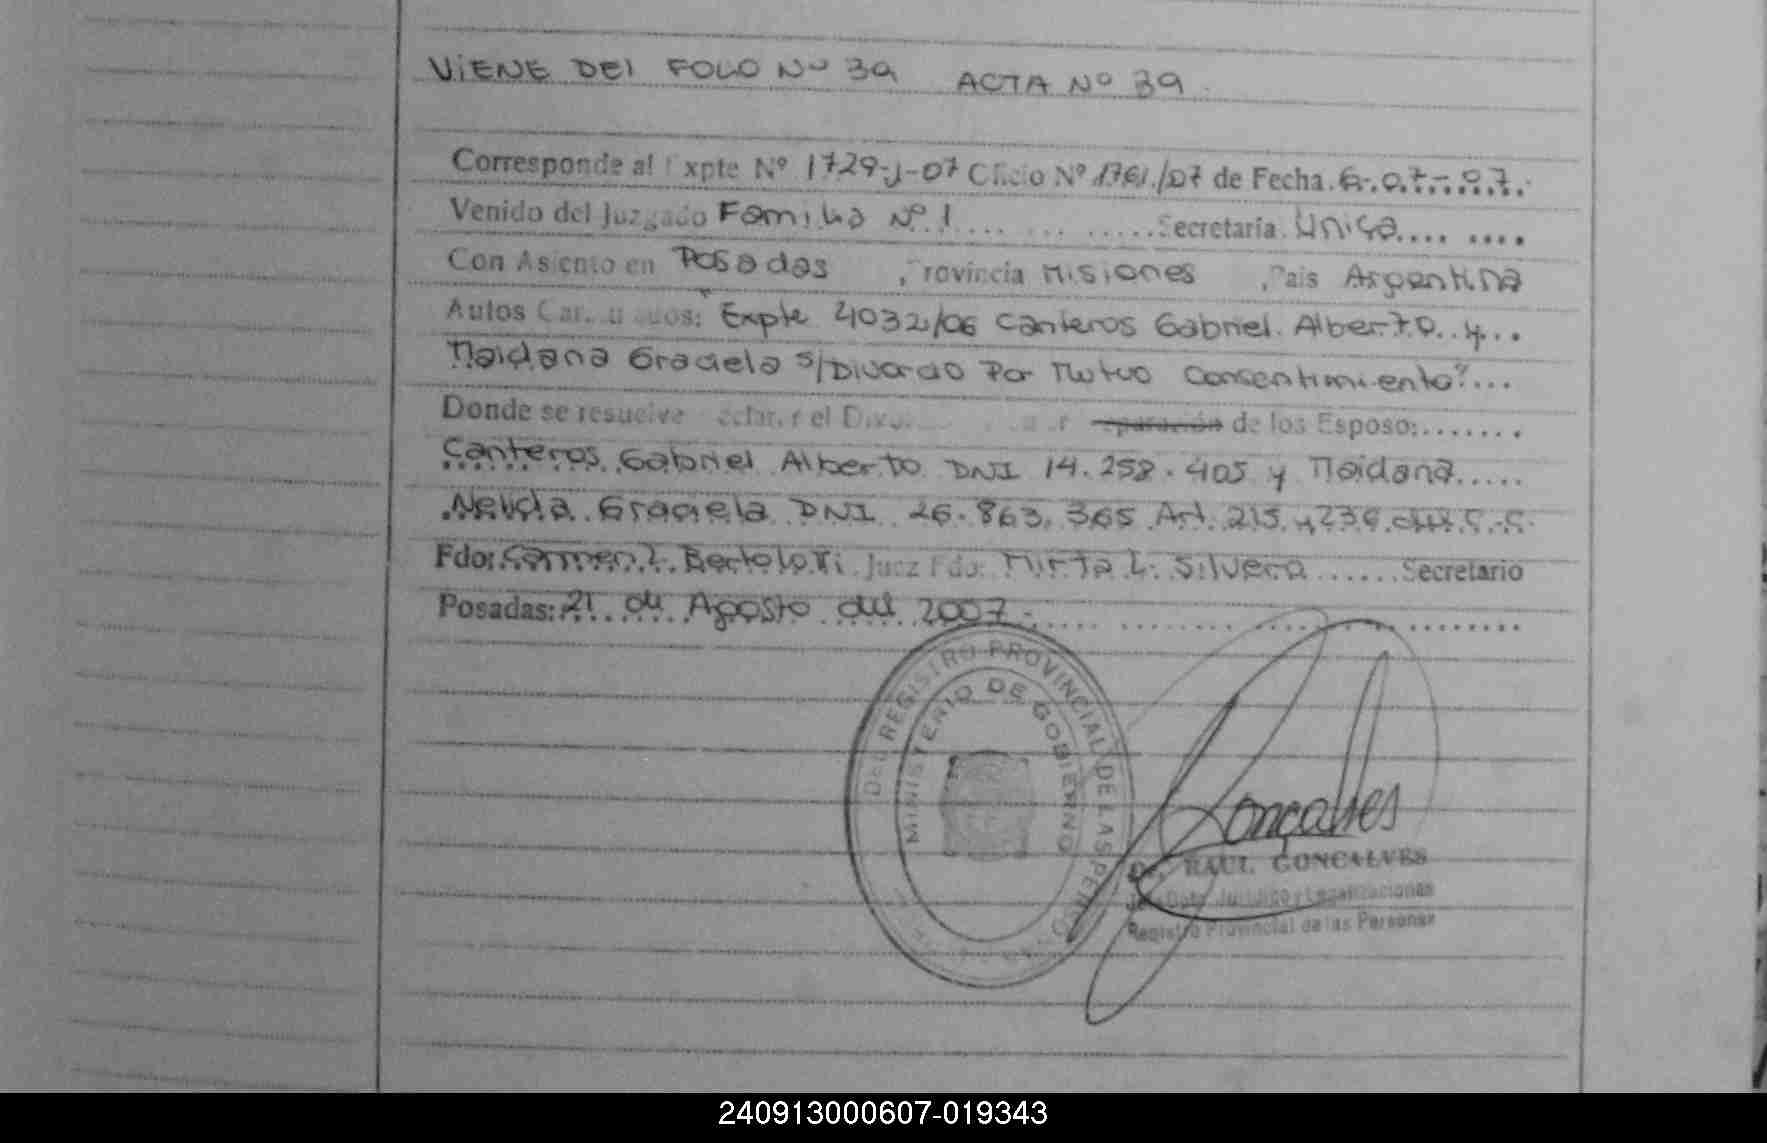 VIENE DEl FOLO Nº 39 ACTA Nº 39.
Corresponde al Expte Nº 1729-J-07 Oficio Nº 1761/07 de Fecha 6-07-07.
Venido del Juzgado Familia Nº 1 Secretaría Unica
Con Asiento en Posadas, Provincia Misiones, País Argentina
Autos Caratulados: "Expte 4032/06 Canteros Gabriel Alberto y
Maidana Graciela S/Divorcio Por Mutuo Consentimiento"
Donde se resuelve declarar el de los Esposo:
Canteros Gabriel Alberto DNI 14.258.405 y Maidana
Nelida Graciela DNI 26.863.365 Art. 215 y 236 del C.C.
Fdo: Carmen L. Bertolotti Juez Fdo: Mirta L. Silvera Secretario
Posadas: 21 de Agosto del 2007.
DEL REGISTRO PROVINCIAL DE LAS PERSONAS
MINISTERIO DE GOBIERNO
Gonçalves
Dr. RAUL GONCALVES
Jefe Dpto. Jurídico y Legalizaciones
Registro Provincial de las Personas
240913000607-019343